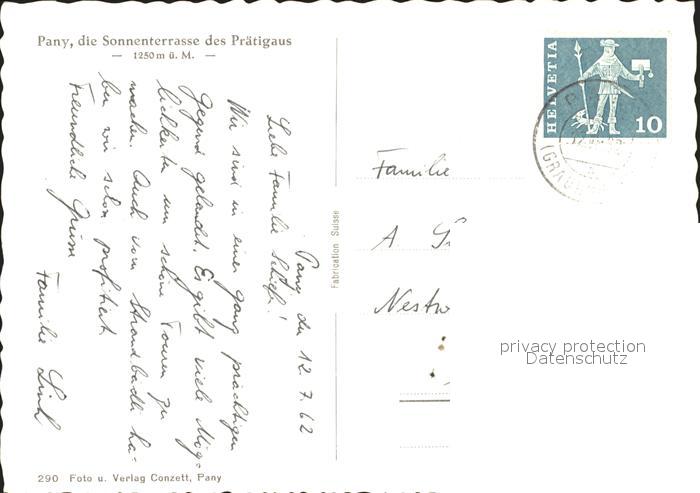 Pany, die Sonnenterrasse des Prätigaus
— 1250 m ü. M. —
Pany den 12.7.62
Liebe Familie
Wir sind in einer ganz prächtigen
Gegend gelandet. Es gibt viele Mög-
lichkeiten um schöne Touren zu
machen. Auch vom Strandbadli ha-
ben wir schon profitiert.
Freundliche Grüsse
Familie
290 Foto u. Verlag Conzett, Pany
Fabrication Suisse
HELVETIA
10
(GRAUB
Familie
A
Nestro
privacy protection
Datenschutz